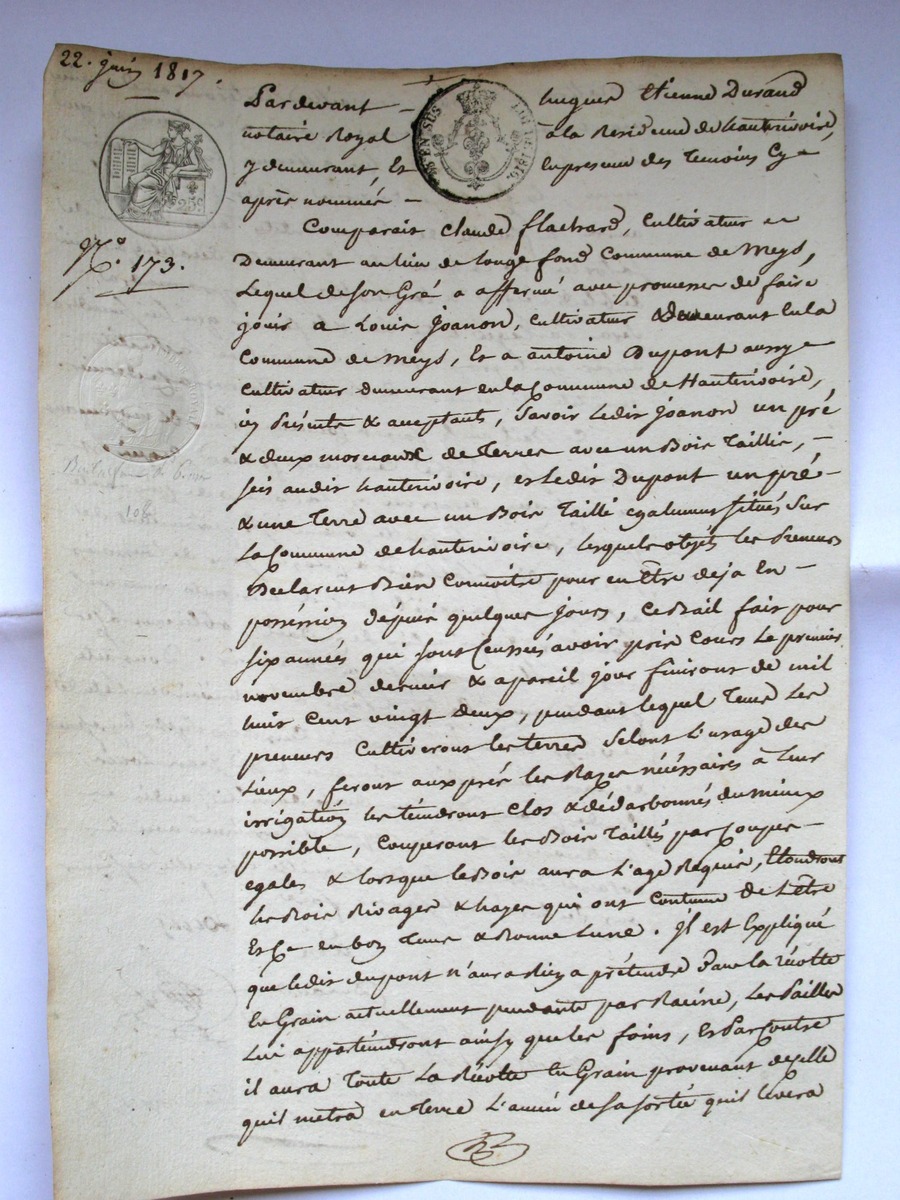 22. juin 1817.
Pardevant hugues Etienne Durand
notaire Royal à la Residence de hauterivoire,
y demeurant, Et en presence des Temoins Cy
après nommés
EN SUS
LOI DE 1816.
25c
N.o 173.
Comparait Claude flachard, cultivateur
Demeurant au lieu de fond Commune de Meys,
Lequel de son Gré a affermé avec promesse de faire
jouir a Louis Joanon, cultivateur & demeurant en la
Commune de Meys, Et a antoine Dupont aussy
Cultivateur demeurant en la Commune de Hauterivoire,
icy Présents & acceptants, Savoir ledit Joanon un pré
& deux morceaux de Terres avec un Bois Taillis,
seis audit hauterivoire, et ledit Dupont un pré
& une Terre avec un Bois Taillé egalement situés Sur
La Commune de hauterivoire, lesquels objets les Preneurs
Declarent Bien Connoitre pour en Être deja En
poséssion dépuis quelques jours, ce Bail fait pour
six années qui sont Censées avoir pris Cours Le premier
novembre dernier & a pareil jour finiront de mil
huit Cent vingt deux, pendant lequel Tems Les
preneurs Cultiveront les terres Selont L'usage des
Lieux, feront aux prés les Razes nécéssaires à Leur
irrigation les tiendront Clos & dédarbonnés du mieux
possible, Couperont les Bois Taillés par Coupes
egales & lorsque le Bois aura L'age Requis, Etondront
les Bois Rivages & hayes qui ont Coutume de L'être
Et Ce en bon Tems & Bonne Lune. Il est Expliqué
que ledit dupont n'aura Rien a prétendre Dans la récolte
En Grain actuellement pendante par Racine, Les Pailles
Lui appartiendront ainsy que les foins, Et Par Contre
il aura Toute La Récolte En Grain provenant de celle
quil metra en Terre L'année de sa sortie quil levera